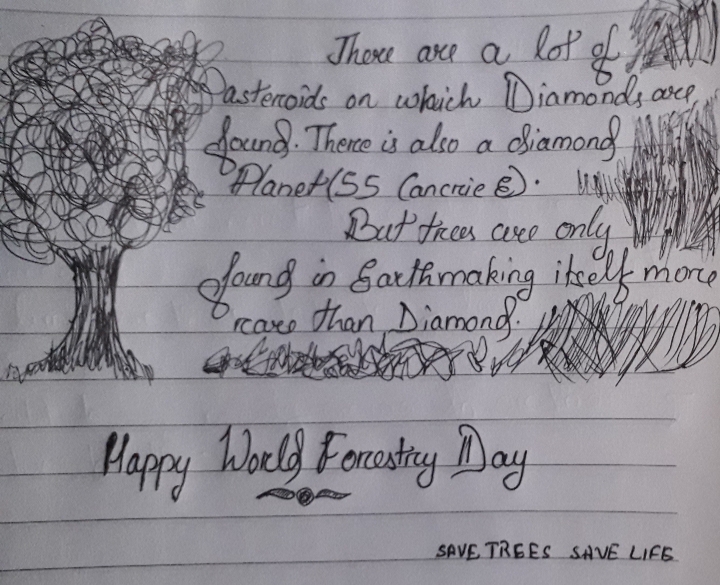 There are a lot of
asteroids on which Diamonds are
found. There is also a diamond
Planet(55 Cancrie E).
But trees are only
found in Earthmaking itself more
rare than Diamond.
Happy World Forestry Day
SAVE TREES SAVE LIFE